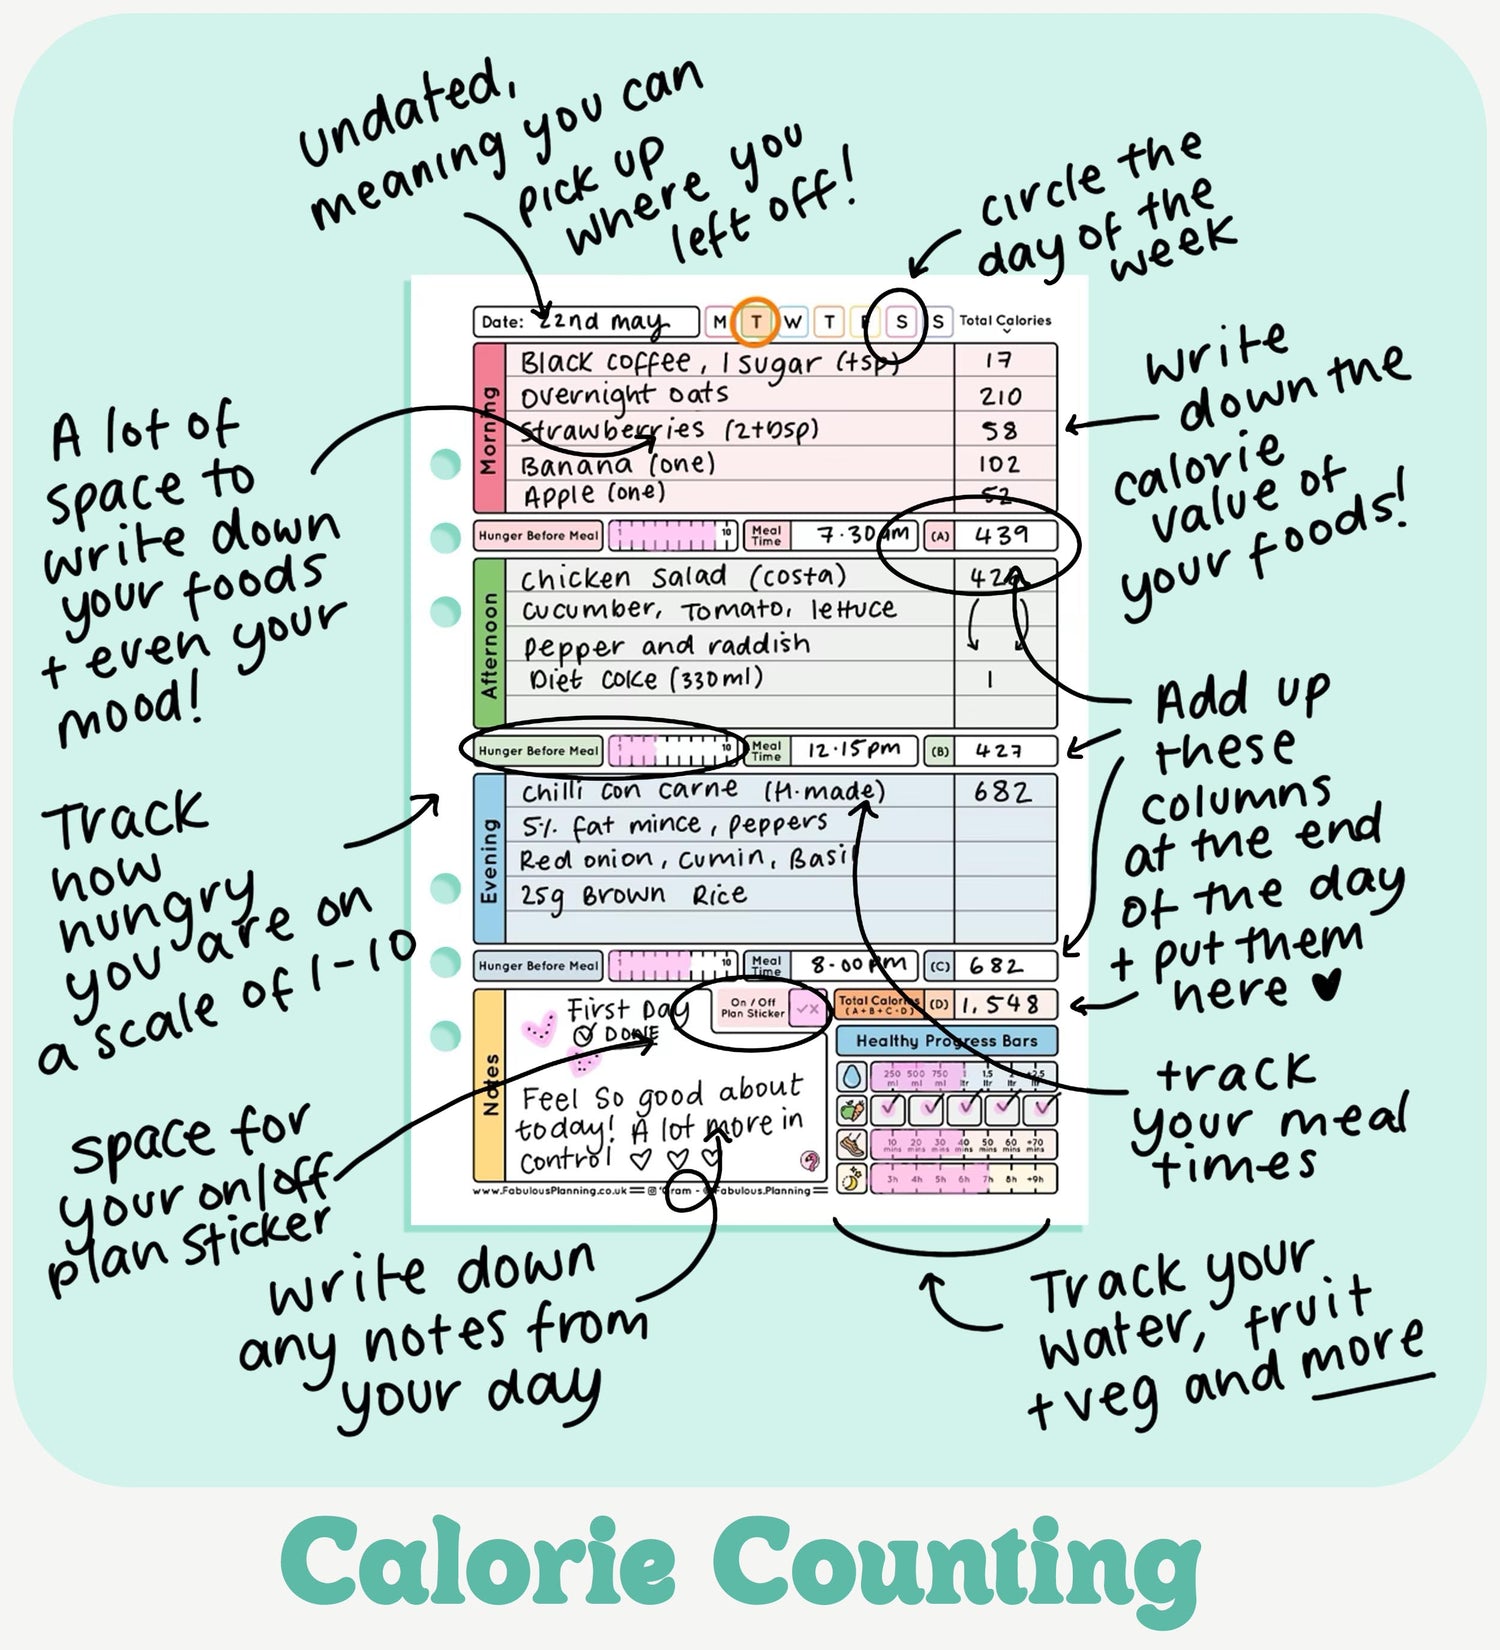 undated,
meaning you can
pick up
where you
left off!
circle the
day of the
week
Date: 22nd may M T W T F S S Total Calories
Morning
Black coffee, 1 sugar (tsp) 17
Overnight oats 210
Strawberries (2tbsp) 58
Banana (one) 102
Apple (one) 52
Hunger Before Meal 1 10 Meal Time 7.30am (A) 439
Afternoon
Chicken Salad (costa)
Cucumber, Tomato, lettuce
Pepper and raddish
Diet Coke (330ml) 1
Hunger Before Meal 1 10 Meal Time 12.15pm (B) 427
Evening
Chilli con carne (H.made) 682
5% fat mince, peppers
Red onion, cumin, Basil
25g Brown Rice
Hunger Before Meal 1 10 Meal Time 8.00pm (C) 682
Notes
First Day
DONE
On / Off
Plan Sticker
Feel so good about
today! A lot more in
control
Total Calories (A+B+C=D) (D) 1,548
Healthy Progress Bars
250 ml 500 ml 750 ml 1 ltr 1.5 ltr 2 ltr +2.5 ltr
10 mins 20 mins 30 mins 40 mins 50 mins 60 mins +70 mins
3h 4h 5h 6h 7h 8h +9h
www.FabulousPlanning.co.uk 'Gram - @Fabulous.Planning
A lot of
space to
write down
your foods
+ even your
mood!
Track
how
hungry
you are on
a scale of 1-10
space for
your on/off
plan sticker
write down
any notes from
your day
write
down the
calorie
value of
your foods!
Add up
these
columns
at the end
of the day
+ put them
here
track
your meal
times
Track your
water, fruit
+ veg and more
Calorie Counting